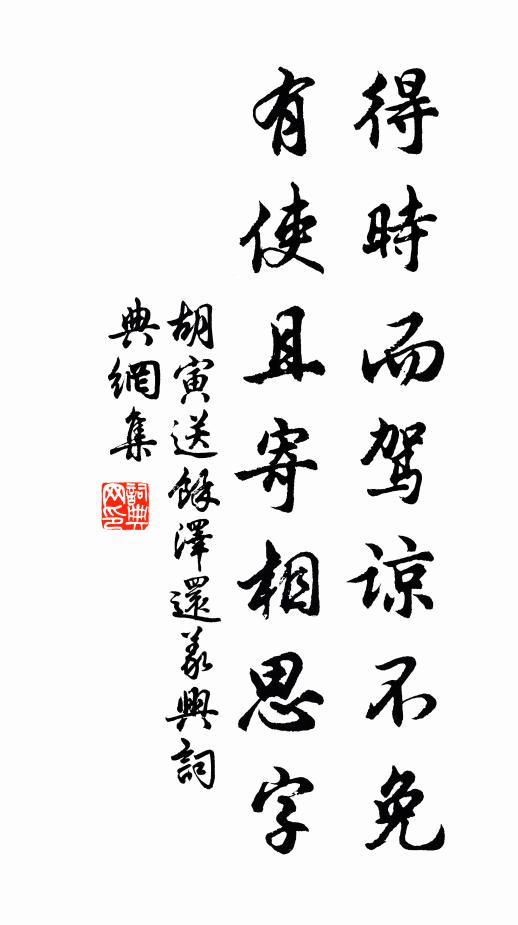 得時而駕諒不免
有使且寄相思字
胡寅送餘澤還義興詞
典網集
詞典
网印